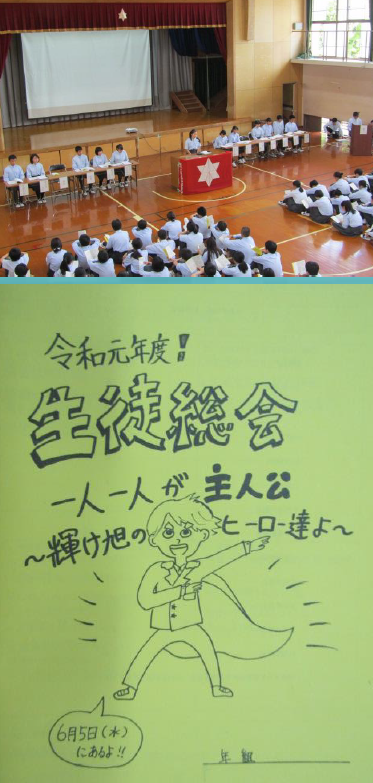 令和元年度!
生徒総会
一人一人が 主人公
～輝け旭の ヒーロー達よ～
6月5日(水)
にあるよ!!
年 組